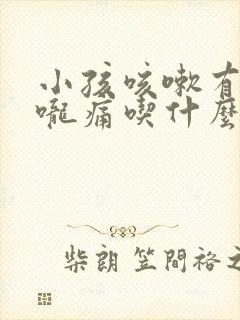 小孩咳嗽有
嚨痛喫什麼
柴朗 笠間裕之